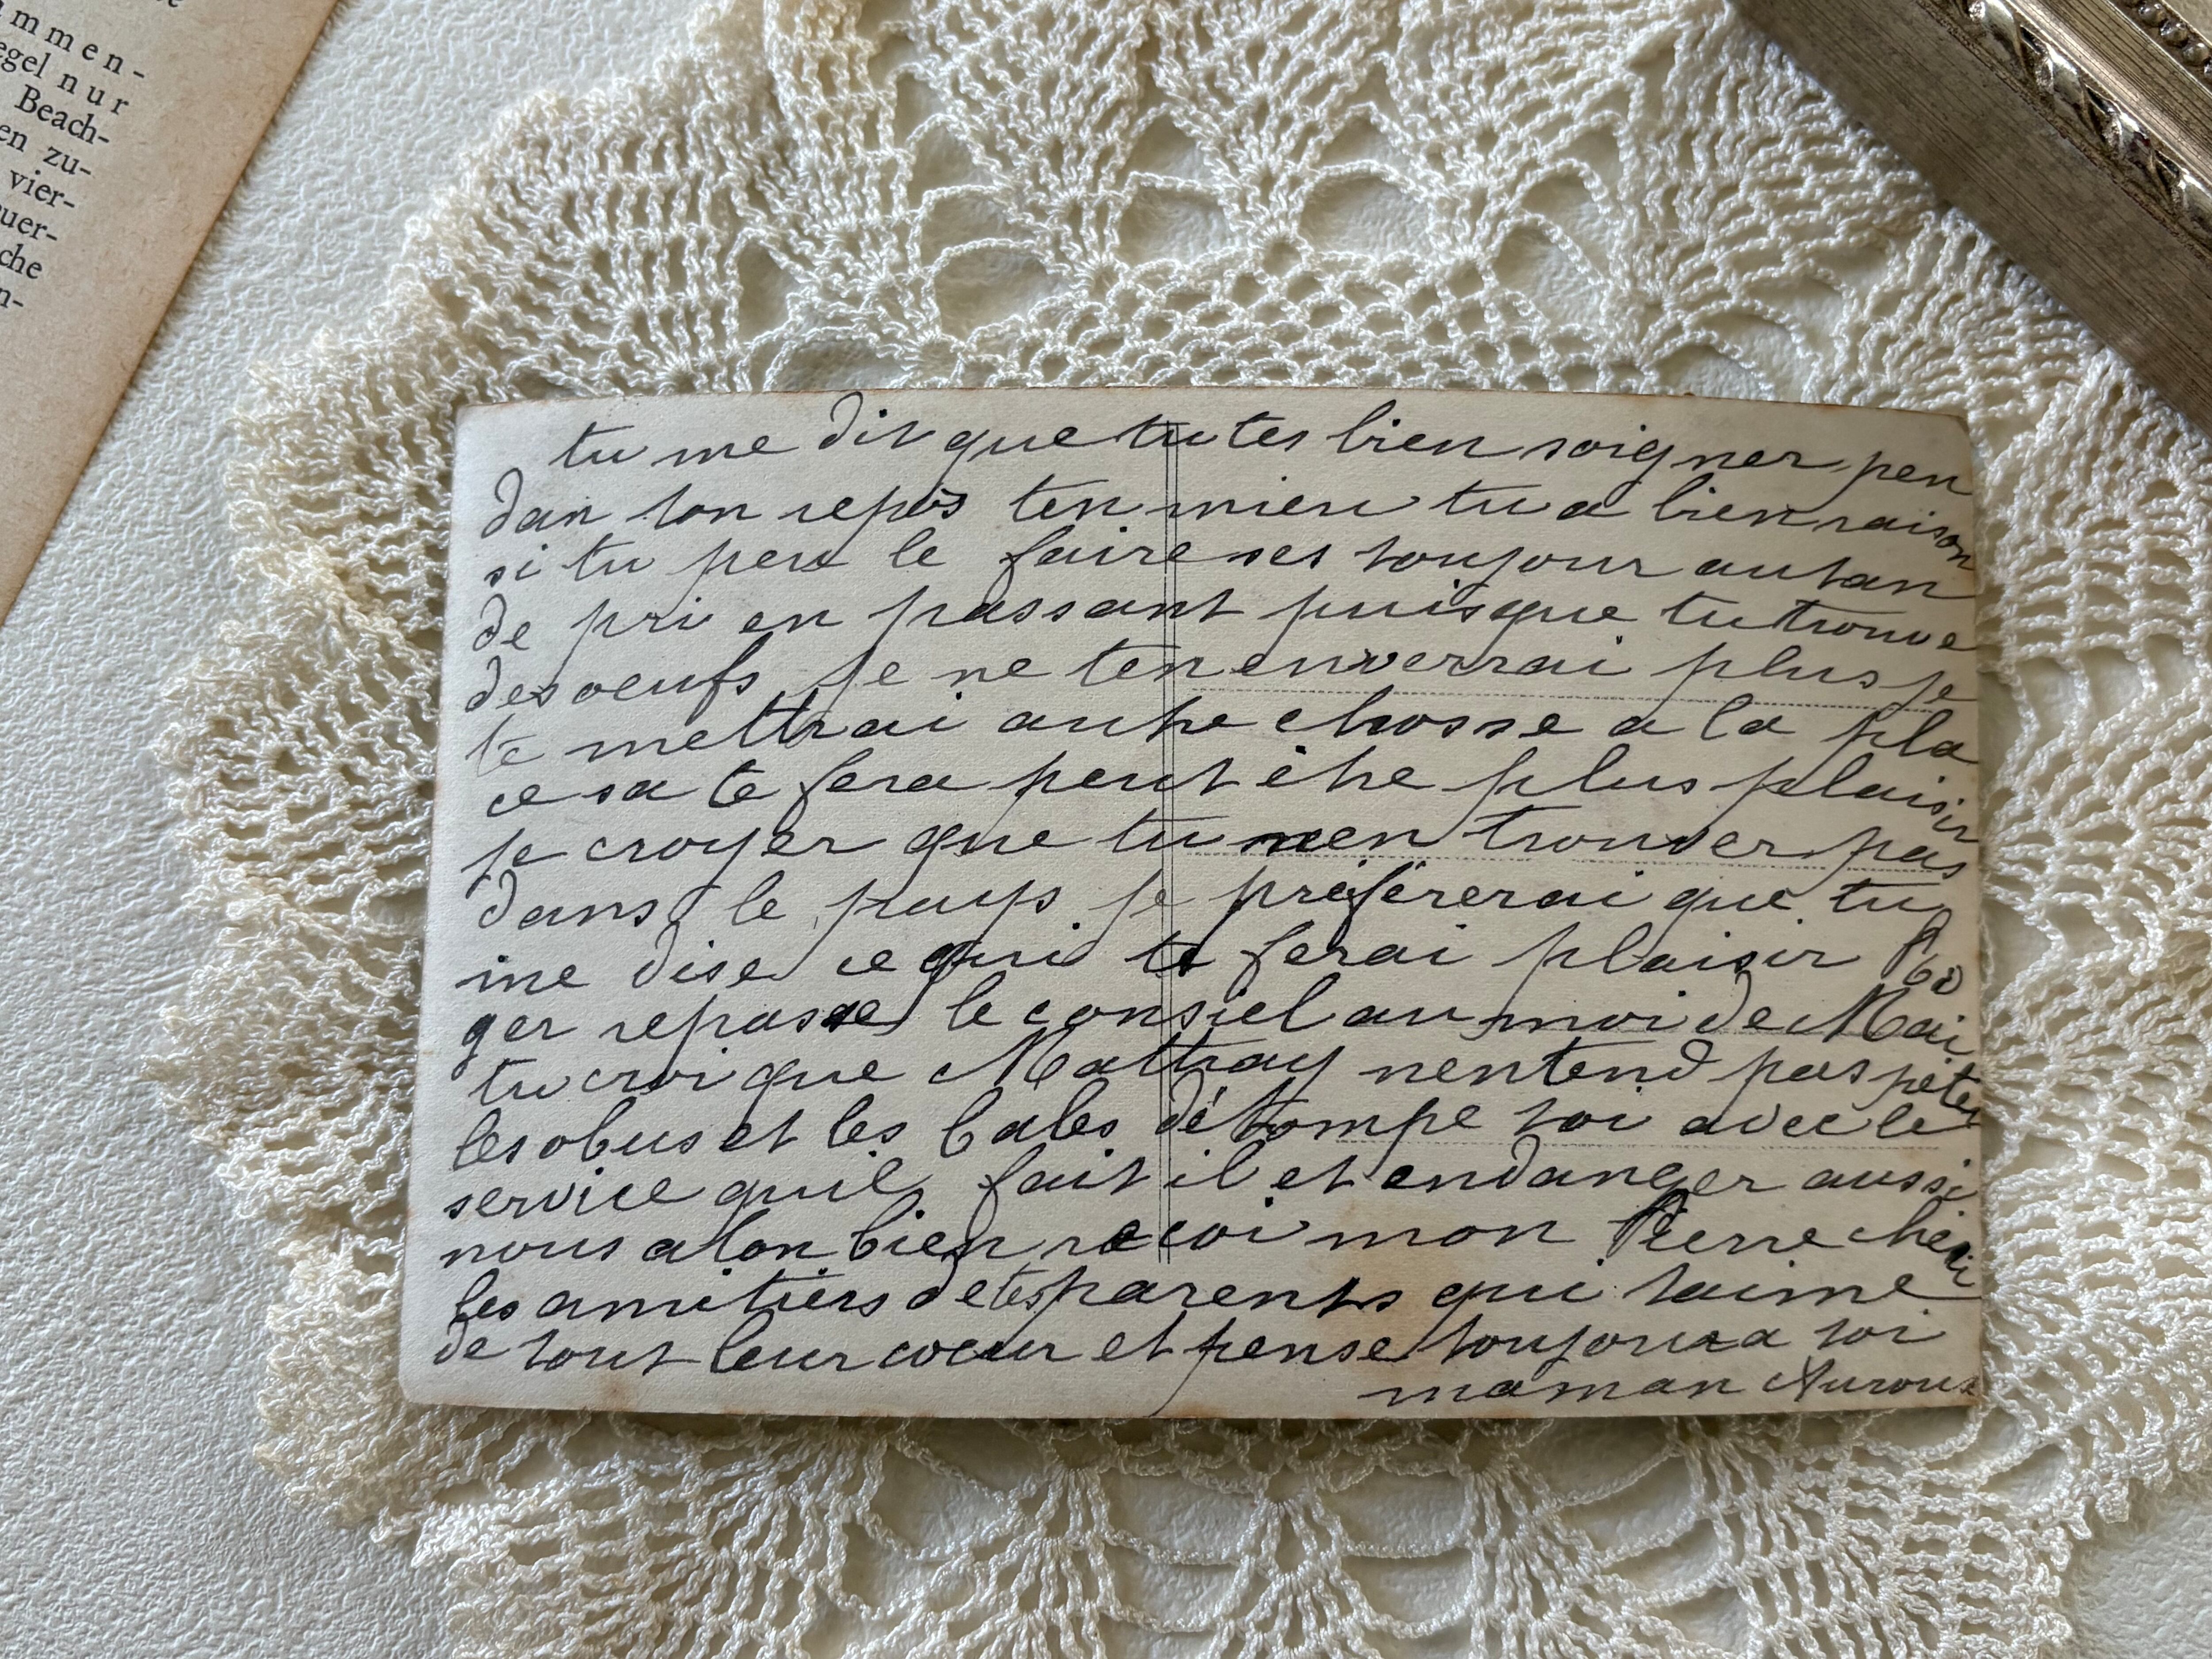 mmen-
egel nur
Beach-
en zu-
vier-
uer-
che
n-
tu me dit que tu tes bien soigner pen
dan ton repos ten mieu tu a bien raison
si tu peu le faire ses toujour autan
de pri en passant puisque tu trouve
des oeufs je ne ten enverrai plus je
te mettrai autre chosse a la pla
ce sa te fera peut être plus plaisir
je croyer que tu nen trouver pas
dans le pays je préfèrerai que tu
me dise ce qui te ferai plaisir
ger repasse le consiel au moi de Mai
tu croi que Mattray nentend pas péter
les obus et les bales détrompe toi avec le
service quil fait il et endanger aussi
nous alon bien recoi mon Pierre cheri
les amitiers de tes parents qui taime
de tout leur coeur et pense toujour a toi
maman